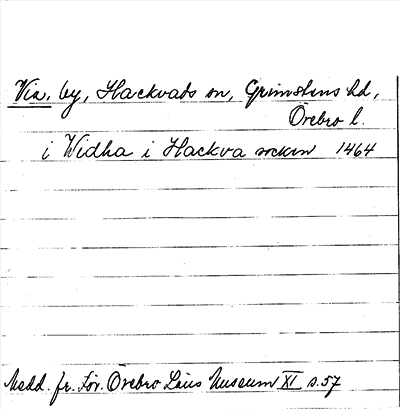 Via, by, Hackvads sn, Grimstens hd,
Örebro l.
i Widha i Hackva sockun 1464
Medd. fr. För. Örebro Läns Museum XI s. 57